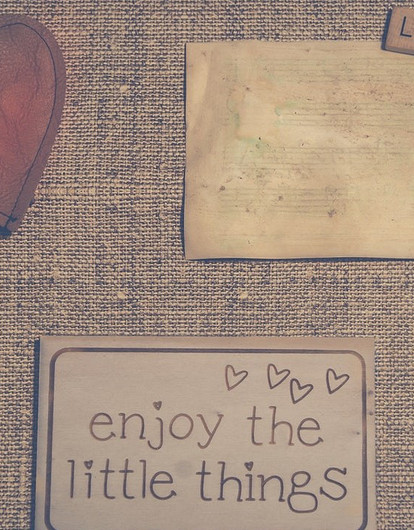 L
enjoy the
little things